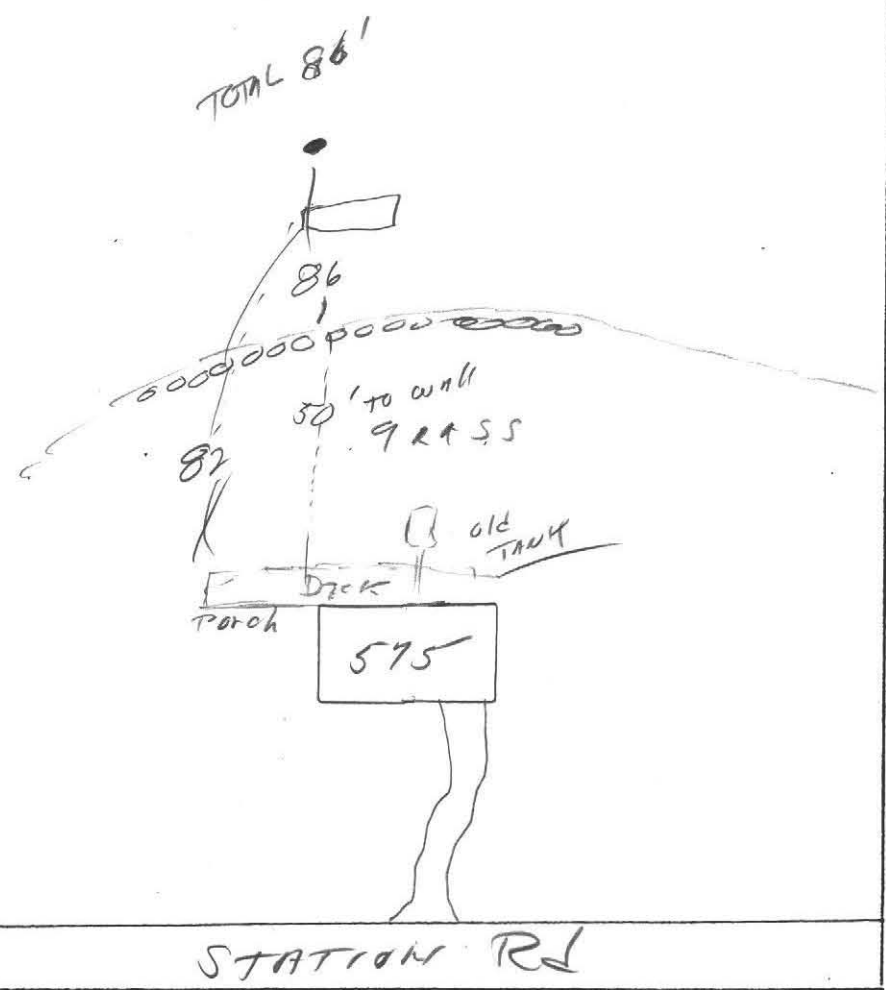 TOTAL 86'
86
50' TO WALL
GRASS
82
old
TANK
Deck
Porch
575
STATION Rd